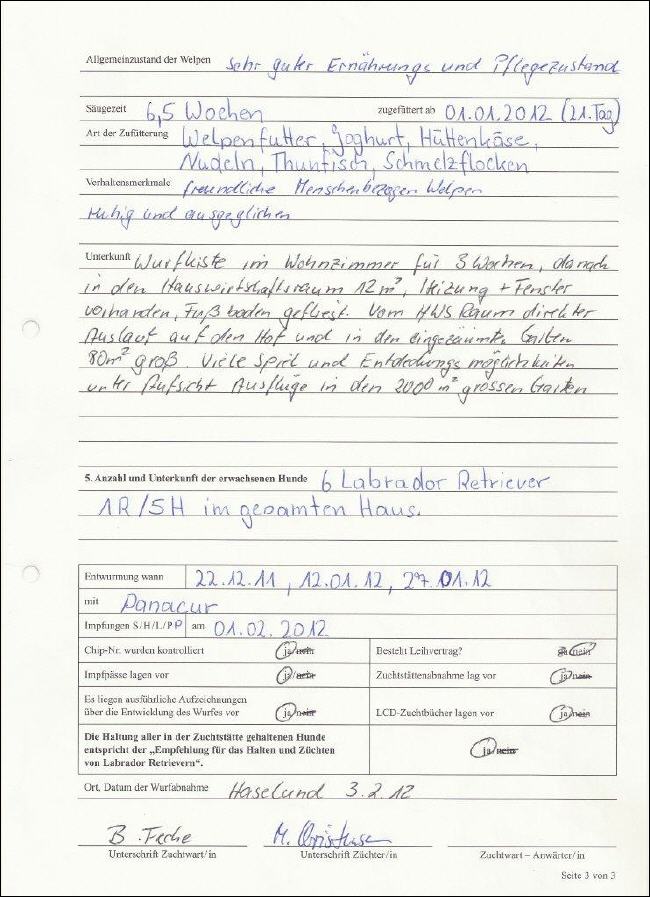 Allgemeinzustand der Welpen Sehr guter Ernährungs und Pflegezustand
Säugezeit 6,5 Wochen zugefüttert ab 01.01.2012 (21.Tag)
Art der Zufütterung Welpenfutter, Joghurt, Hüttenkäse,
Nudeln, Thunfisch, Schmelzflocken
Verhaltensmerkmale freundliche Menschenbezogen Welpen
ruhig und ausgeglichen
Unterkunft Wurfkiste im Wohnzimmer für 3 Wochen, danach
in den Hauswirtschaftsraum 12m², Heizung + Fenster
vorhanden, Fußboden gefliest. Vom HWS Raum direkter
Auslauf auf den Hof und in den eingezäunten Garten
80m² groß. Viele Spiel und Entdeckungsmöglichkeiten
unter Aufsicht Ausflüge in den 2000m² grossen Garten
5. Anzahl und Unterkunft der erwachsenen Hunde 6 Labrador Retriever
1R/5H im gesamten Haus.
Entwurmung wann 22.12.11, 12.01.12, 27.01.12
mit Panacur
Impfungen S/H/L/PP am 01.02.2012
Chip-Nr. wurden kontrolliert ja/nein Besteht Leihvertrag? ja/nein
Impfpässe lagen vor ja/nein Zuchtstättenabnahme lag vor ja/nein
Es liegen ausführliche Aufzeichnungen
über die Entwicklung des Wurfes vor ja/nein LCD-Zuchtbücher lagen vor ja/nein
Die Haltung aller in der Zuchtstätte gehaltenen Hunde
entspricht der „Empfehlung für das Halten und Züchten ja/nein
von Labrador Retrievern“.
Ort, Datum der Wurfabnahme Haselund 3.2.12
B. M.
Unterschrift Zuchtwart/in Unterschrift Züchter/in Zuchtwart – Anwärter/in
Seite 3 von 3